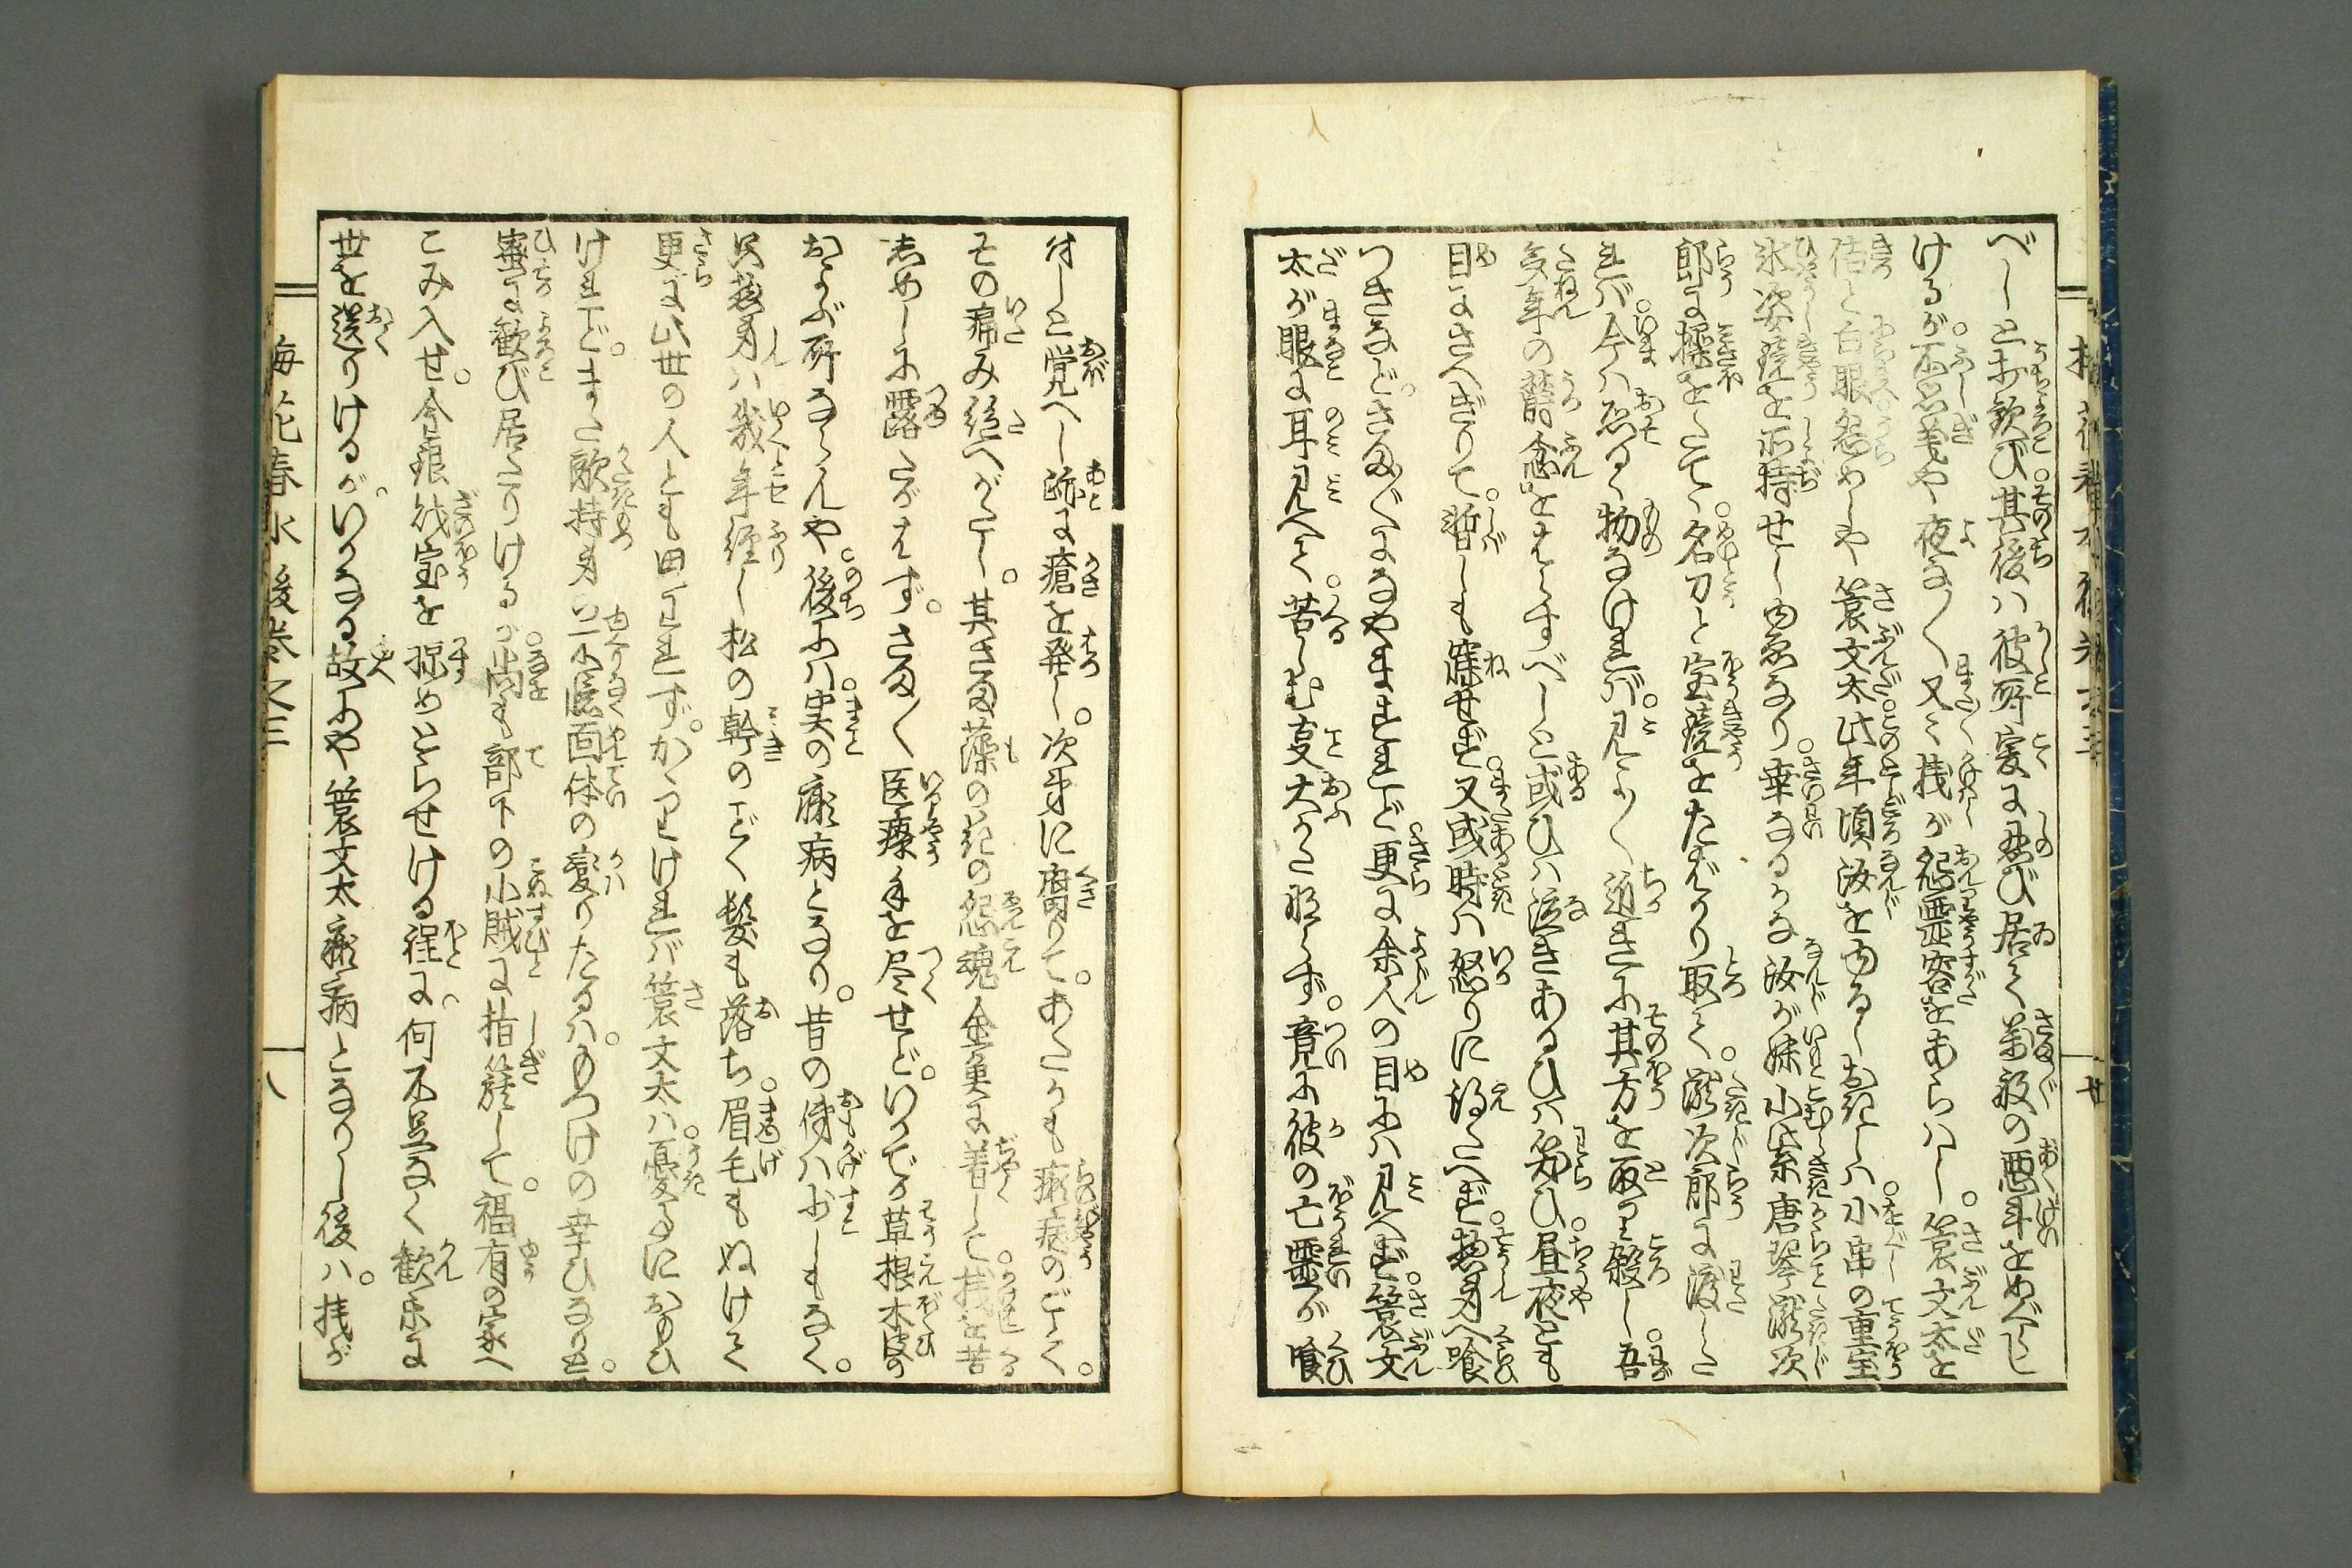 べしと打歓び。其後ハ彼所爰に忍び居て。万般の悪計をめぐらし
けるが。不思義や夜な〳〵又々桟が怨霊容をあらハし。簑文太を
佶と白眼怨めしや簑文太此年頃汝をゆるし於しハ。小串の重宝
氷姿鏡を所持せしゆゑなり。幸なるかな汝が妹小柴唐琴瀧次
郎に操をたて。名刀と宝鏡をたばかり取て。瀧次郎に渡した
れバ。今ハ恐るゝ物なけれバ。見よ〳〵近きに其方を取り殺し。吾
多年の鬱念をはらすべしと或ひハ泣きあるひハ笑ひ。昼夜とも
目にさへぎりて。暫しも寐せず。又或時ハ怒りに得たへず。惣身へ喰
つきなど。さま〴〵になやませれど。更に余人の目にハ見へず。簑文
太が眼に耳見へて。苦しむ事大かた形らず。竟に彼の亡霊が喰
付しと覚へし跡に瘡を発し。次第に腐りて。あたかも癩病のごとく。
その痛み絶へがたし。其さま藻の花の怨魂金魚に着して桟を苦
しめしに露たがはず。さま〴〵医療手を尽せど。いかでか草根木皮の
およぶ所ならんや。後にハ実の癩病となり。昔の俤ハ少しもなく。
只惣身ハ幾年経し松の幹のごとく髪も落ち。眉毛もぬけて
更に此世の人とも思ハれず。かくりけれバ簑文太ハ憂事におもひ
けれど。また敵持身の一ト医面体の変りたるハ。もつけの幸ひなりと。
密に歓び居たりけるが。尚も部下の小賊に指簱して。福有の家へ
こみ入せ。金銀財宝を掠めとらせける程に。何不足なく歓楽に
世を送りけるが。いかなる故にや簑文太癩病となりし後ハ。桟が
梅花春水後巻之三
八